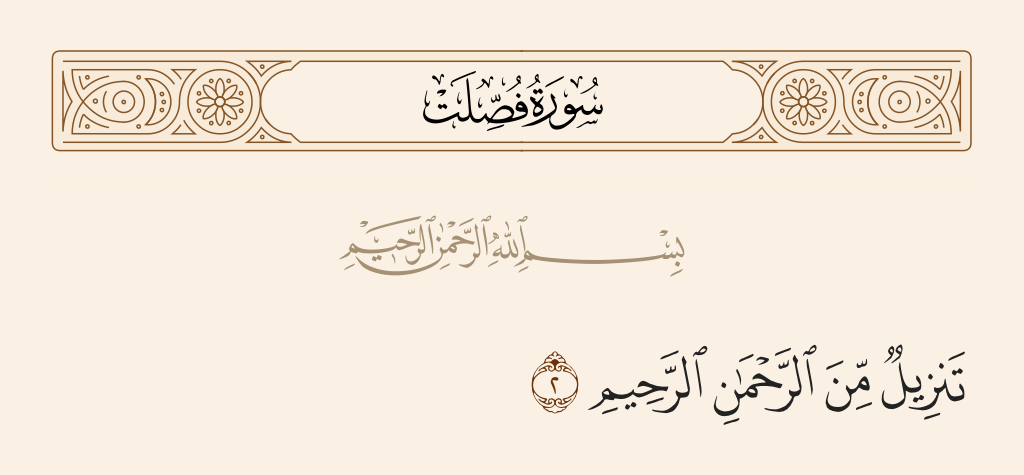 سُورَةُ فُصِّلَتْ
بِسْمِ ٱللَّهِ ٱلرَّحْمَٰنِ ٱلرَّحِيمِ
تَنزِيلٌ مِّنَ ٱلرَّحْمَٰنِ ٱلرَّحِيمِ ٢